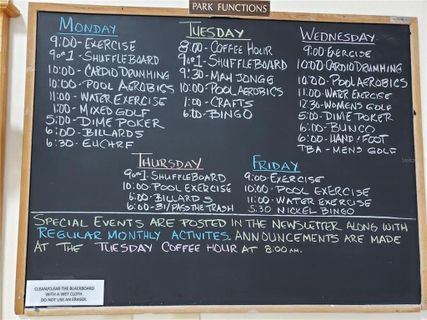 PARK FUNCTIONS
MONDAY
9:00-EXERCISE
9 OR 1-SHUFFLEBOARD
10:00-CARDIO DRUMMING
10:00-POOL AEROBICS
11:00-WATER EXERCISE
1:00-MIXED GOLF
5:00-DIME POKER
6:00-BILLARDS
6:30-EUCHRE
TUESDAY
8:00-COFFEE HOUR
9 OR 1-SHUFFLEBOARD
9:30-MAH JONGG
10:00-POOL AEROBICS
1:00-CRAFTS
6:00-BINGO
WEDNESDAY
9:00 EXERCISE
10:00 CARDIO DRUMMING
10:00-POOL AEROBICS
11:00-WATER EXERCISE
12:30-WOMENS GOLF
5:00-DIME POKER
6:00-BUNCO
6:00-HAND/FOOT
TBA-MENS GOLF
THURSDAY
9 OR 1-SHUFFLEBOARD
10:00-POOL EXERCISE
6:00-BILLARDS
6:00-31/PASS THE TRASH
FRIDAY
9:00-EXERCISE
10:00-POOL EXERCISE
11:00-WATER EXERCISE
5:30 NICKEL BINGO
SPECIAL EVENTS ARE POSTED IN THE NEWSLETTER ALONG WITH
REGULAR MONTHLY ACTIVITES. ANNOUNCEMENTS ARE MADE
AT THE TUESDAY COFFEE HOUR AT 8:00AM.
CLEAN/CLEAR THE BLACKBOARD
WITH A WET CLOTH.
DO NOT USE AN ERASER.